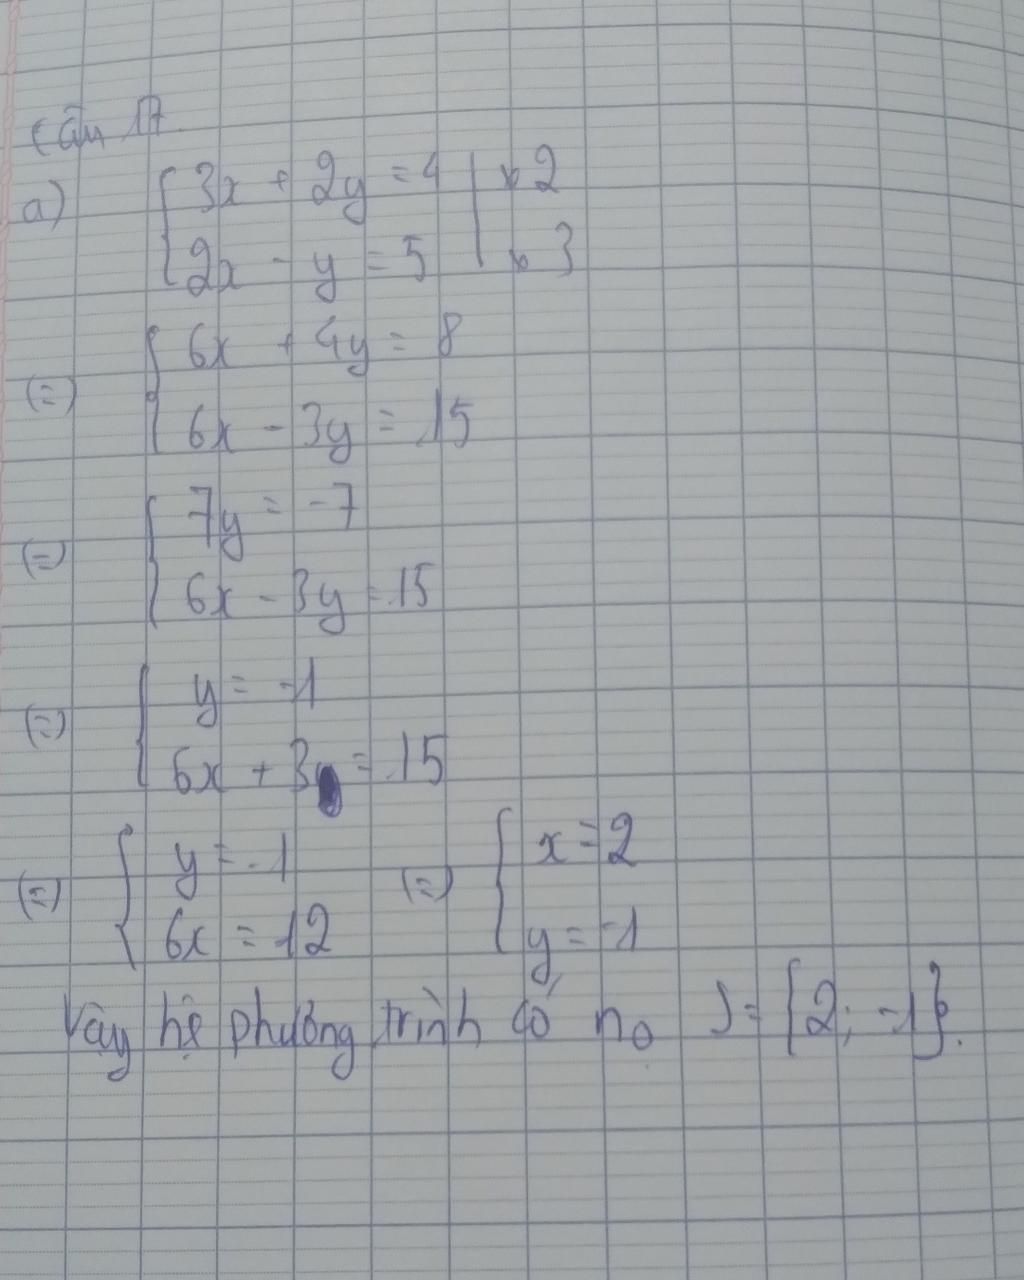 Câu 17
a) { 3x + 2y = 4 | x 2
2x - y = 5 | x 3
(=) { 6x + 4y = 8
6x - 3y = 15
(=) { 7y = -7
6x - 3y = 15
(=) { y = -1
6x + 3 = 15
(=) { y = -1 (=) { x = 2
6x = 12 y = -1
Vậy hệ phương trình có no S = {2; -1}.